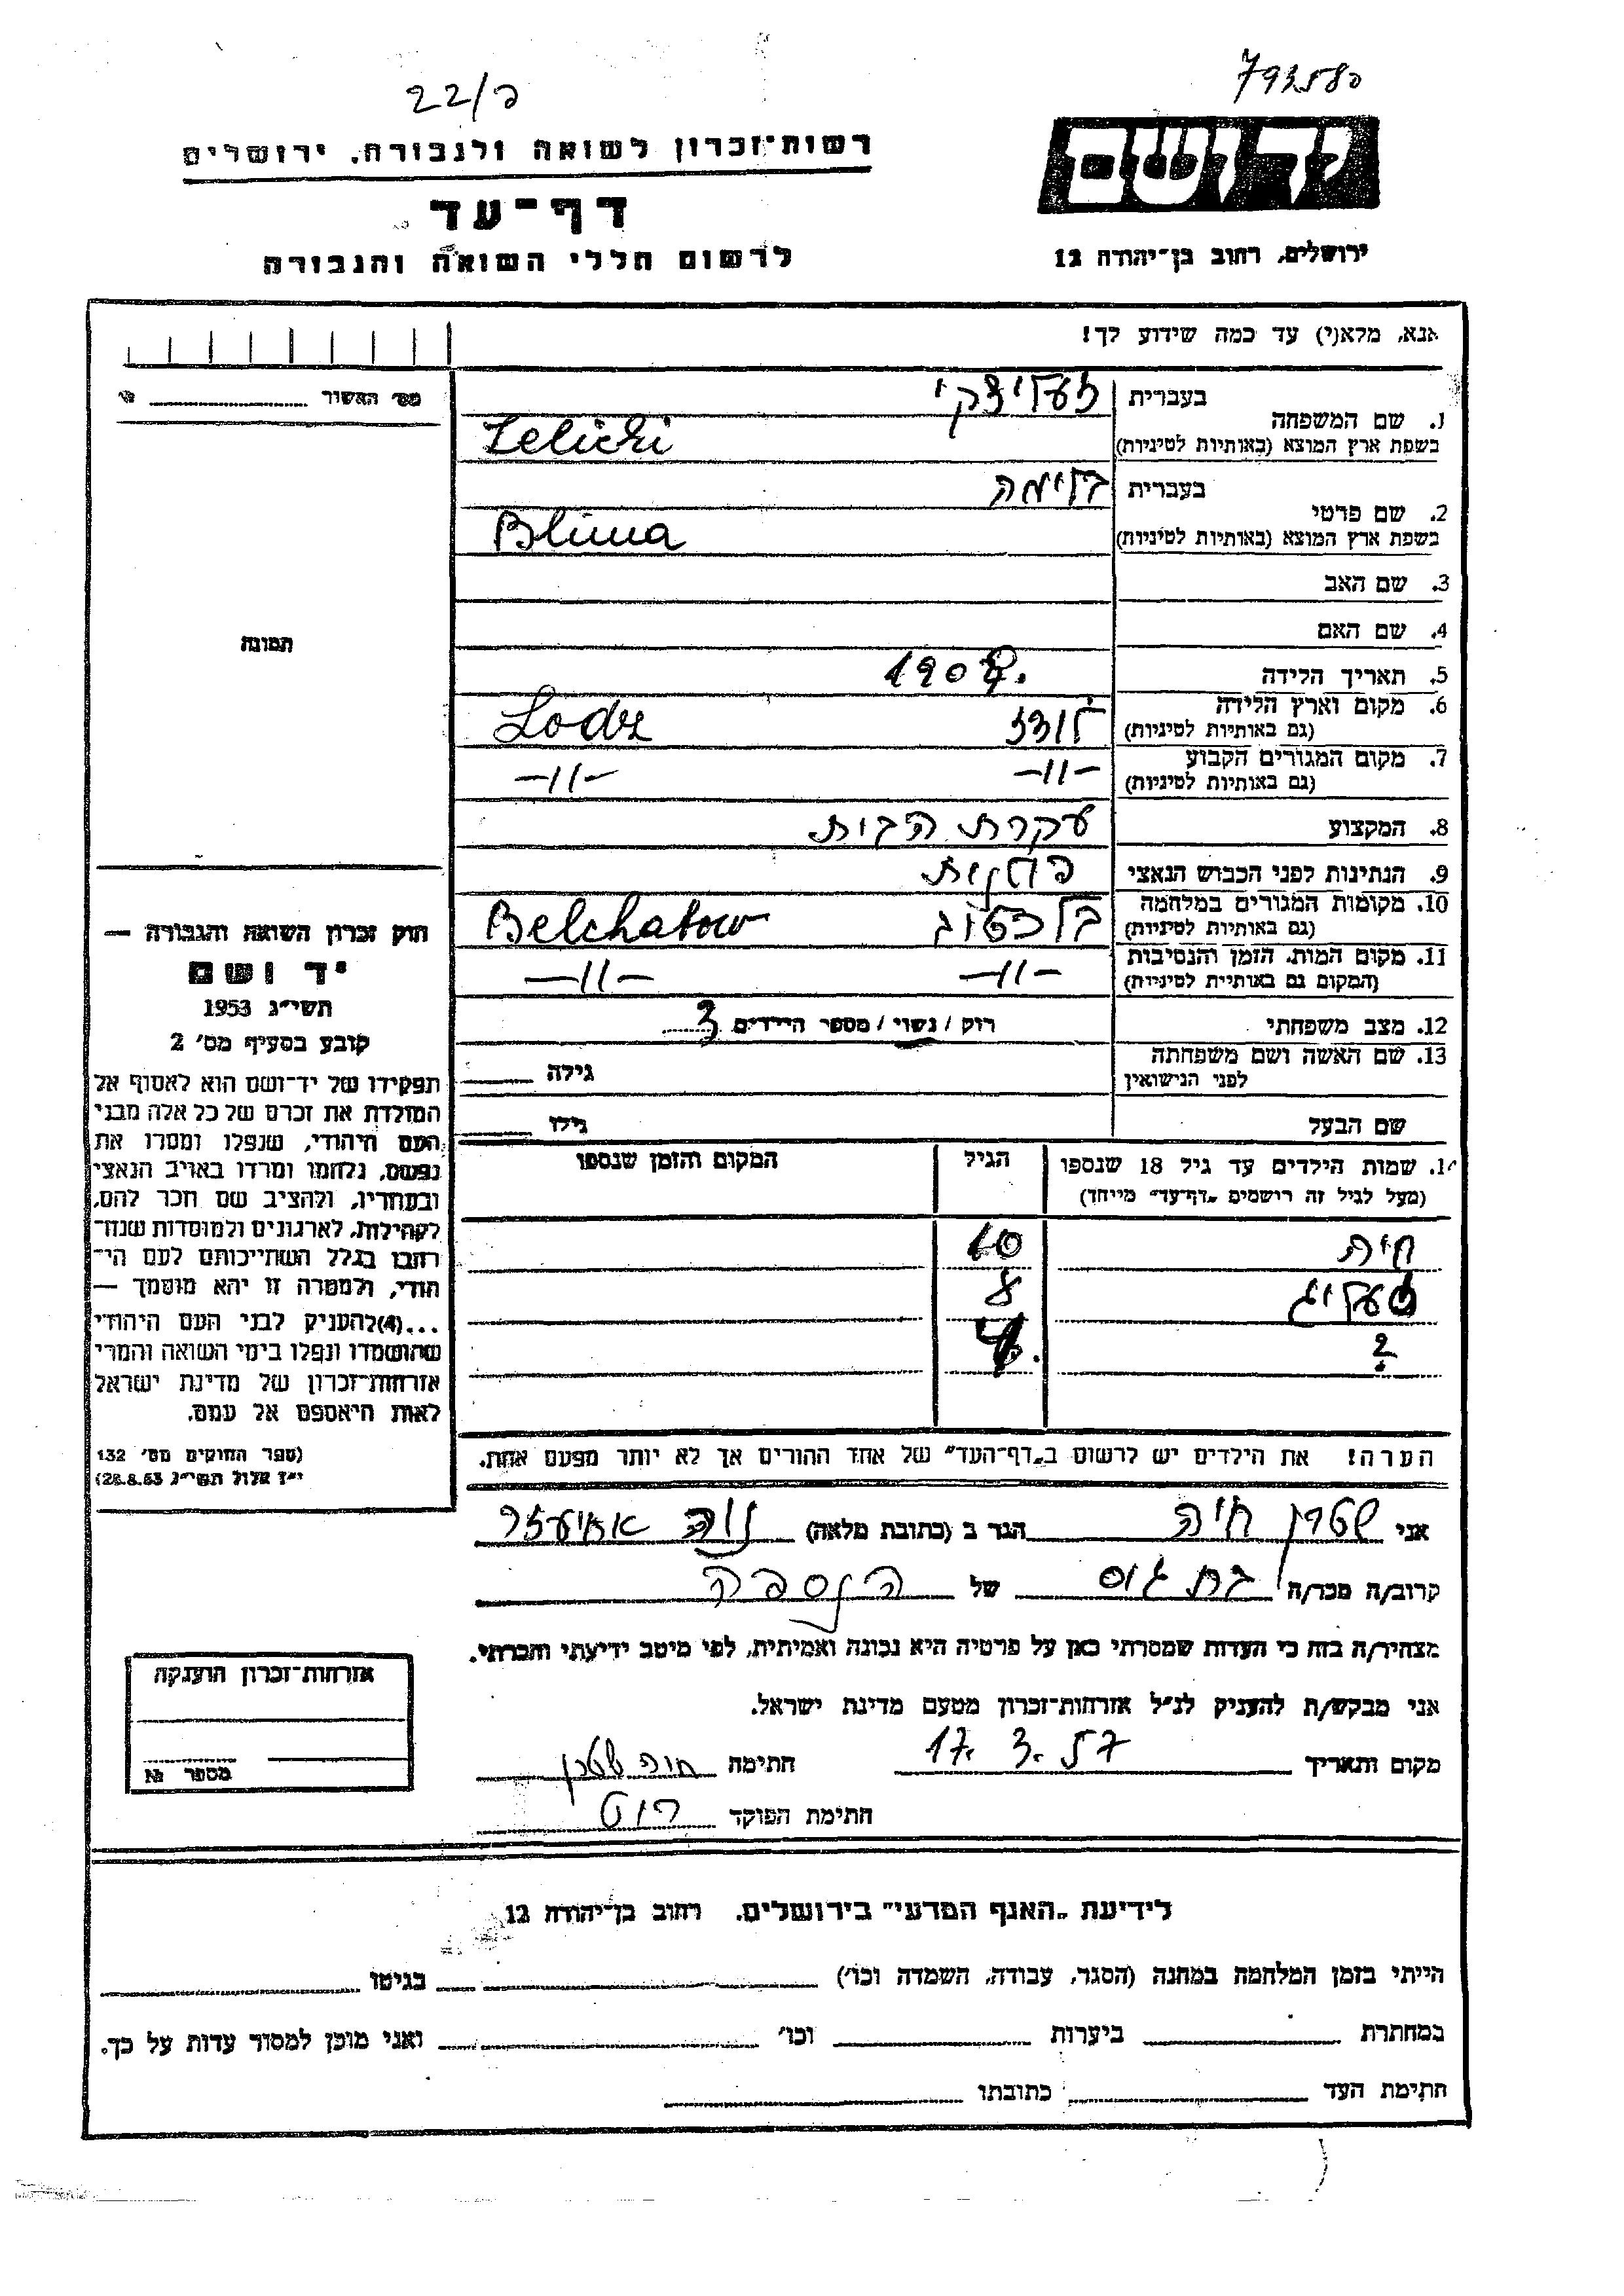 22/פ
793580
רשות־זכרון לשואה ולגבורה, ירושלים
יד ושם
דף־עד
ירושלים, רחוב בן־יהודה 12
לרשום חללי השואה והגבורה
אנא, מלא(י) עד כמה שידוע לך!
מס׳ האשור
1. שם המשפחה
בעברית
זעליצקי
בשפת ארץ המוצא (באותיות לטיניות)
Zelicki
2. שם פרטי
בעברית
בלימה
בשפת ארץ המוצא (באותיות לטיניות)
Blima
3. שם האב
4. שם האם
תמונה
5. תאריך הלידה
6. מקום וארץ הלידה
(גם באותיות לטיניות)
לודז Lodz
7. מקום המגורים הקבוע
(גם באותיות לטיניות)
–11– –11–
8. המקצוע עקרת הבית
9. הנתינות לפני הכבוש הנאצי
10. מקומות המגורים במלחמה
(גם באותיות לטיניות)
Belchatow
11. מקום המות, הזמן והנסיבות
(המקום גם באותיות לטיניות)
–11– –11–
12. מצב משפחתי רוק / נשוי / מספר הילדים 3
13. שם האשה ושם משפחתה
לפני הנישואין
גילה
שם הבעל גילו
14. שמות הילדים עד גיל 18 שנספו
(מעל לגיל זה רושמים „דף־עד״ מייחד)
הגיל
המקום והזמן שנספו
חיה 10
8
? 4
הערה! את הילדים יש לרשום ב„דף־העד״ של אחד ההורים אך לא יותר מפעם אחת.
חוק זכרון השואה והגבורה —
יד ושם
תשי״ג 1953
קובע בסעיף מס׳ 2
תפקידו של יד־ושם הוא לאסוף אל
המולדת את זכרם של כל אלה מבני
העם היהודי, שנפלו ומסרו את
נפשם, נלחמו ומרדו באויב הנאצי
ובעוזריו, ולהציב שם וזכר להם,
לקהילות, לארגונים ולמוסדות שנח־
רבו בגלל השתייכותם לעם הי־
הודי, ולמטרה זו יהא מוסמך —
...(4)להעניק לבני העם היהודי
שהושמדו ונפלו בימי השואה והמרי
אזרחות־זכרון של מדינת ישראל
לאות היאספם אל עמם.
(ספר החוקים מס׳ 132
י״ז אלול תשי״ג 28.8.53)
אני שטרן חיה הגר ב (כתובת מלאה) נוה אליעזר
קרוב/ה מכר/ה בת גיס של הנספה
מצהיר/ה בזה כי העדות שמסרתי כאן על פרטיה היא נכונה ואמיתית, לפי מיטב ידיעתי והכרתי.
אני מבקש/ת להעניק לנ״ל אזרחות־זכרון מטעם מדינת ישראל.
מקום ותאריך 17. 3. 57 חתימה חיה שטרן
חתימת הפוקד
אזרחות־זכרון הוענקה
מספר №
לידיעת „האגף המדעי״ בירושלים, רחוב בן־יהודה 12
הייתי בזמן המלחמה במחנה (הסגר, עבודה, השמדה וכו׳) בגיטו
במחתרת ביערות וכו׳ ואני מוכן למסור עדות על כך.
חתימת העד כתובתו